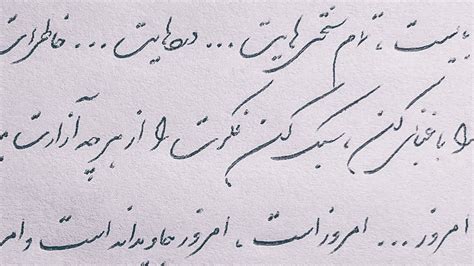 بیست ، تمام سختی هایت ... دردهایت ... خاطرات
را باغبانی کن ، سبک کن فکرت را از هر چه آزارت
امروز ... امروز است ، امروز جاودانه است و امر